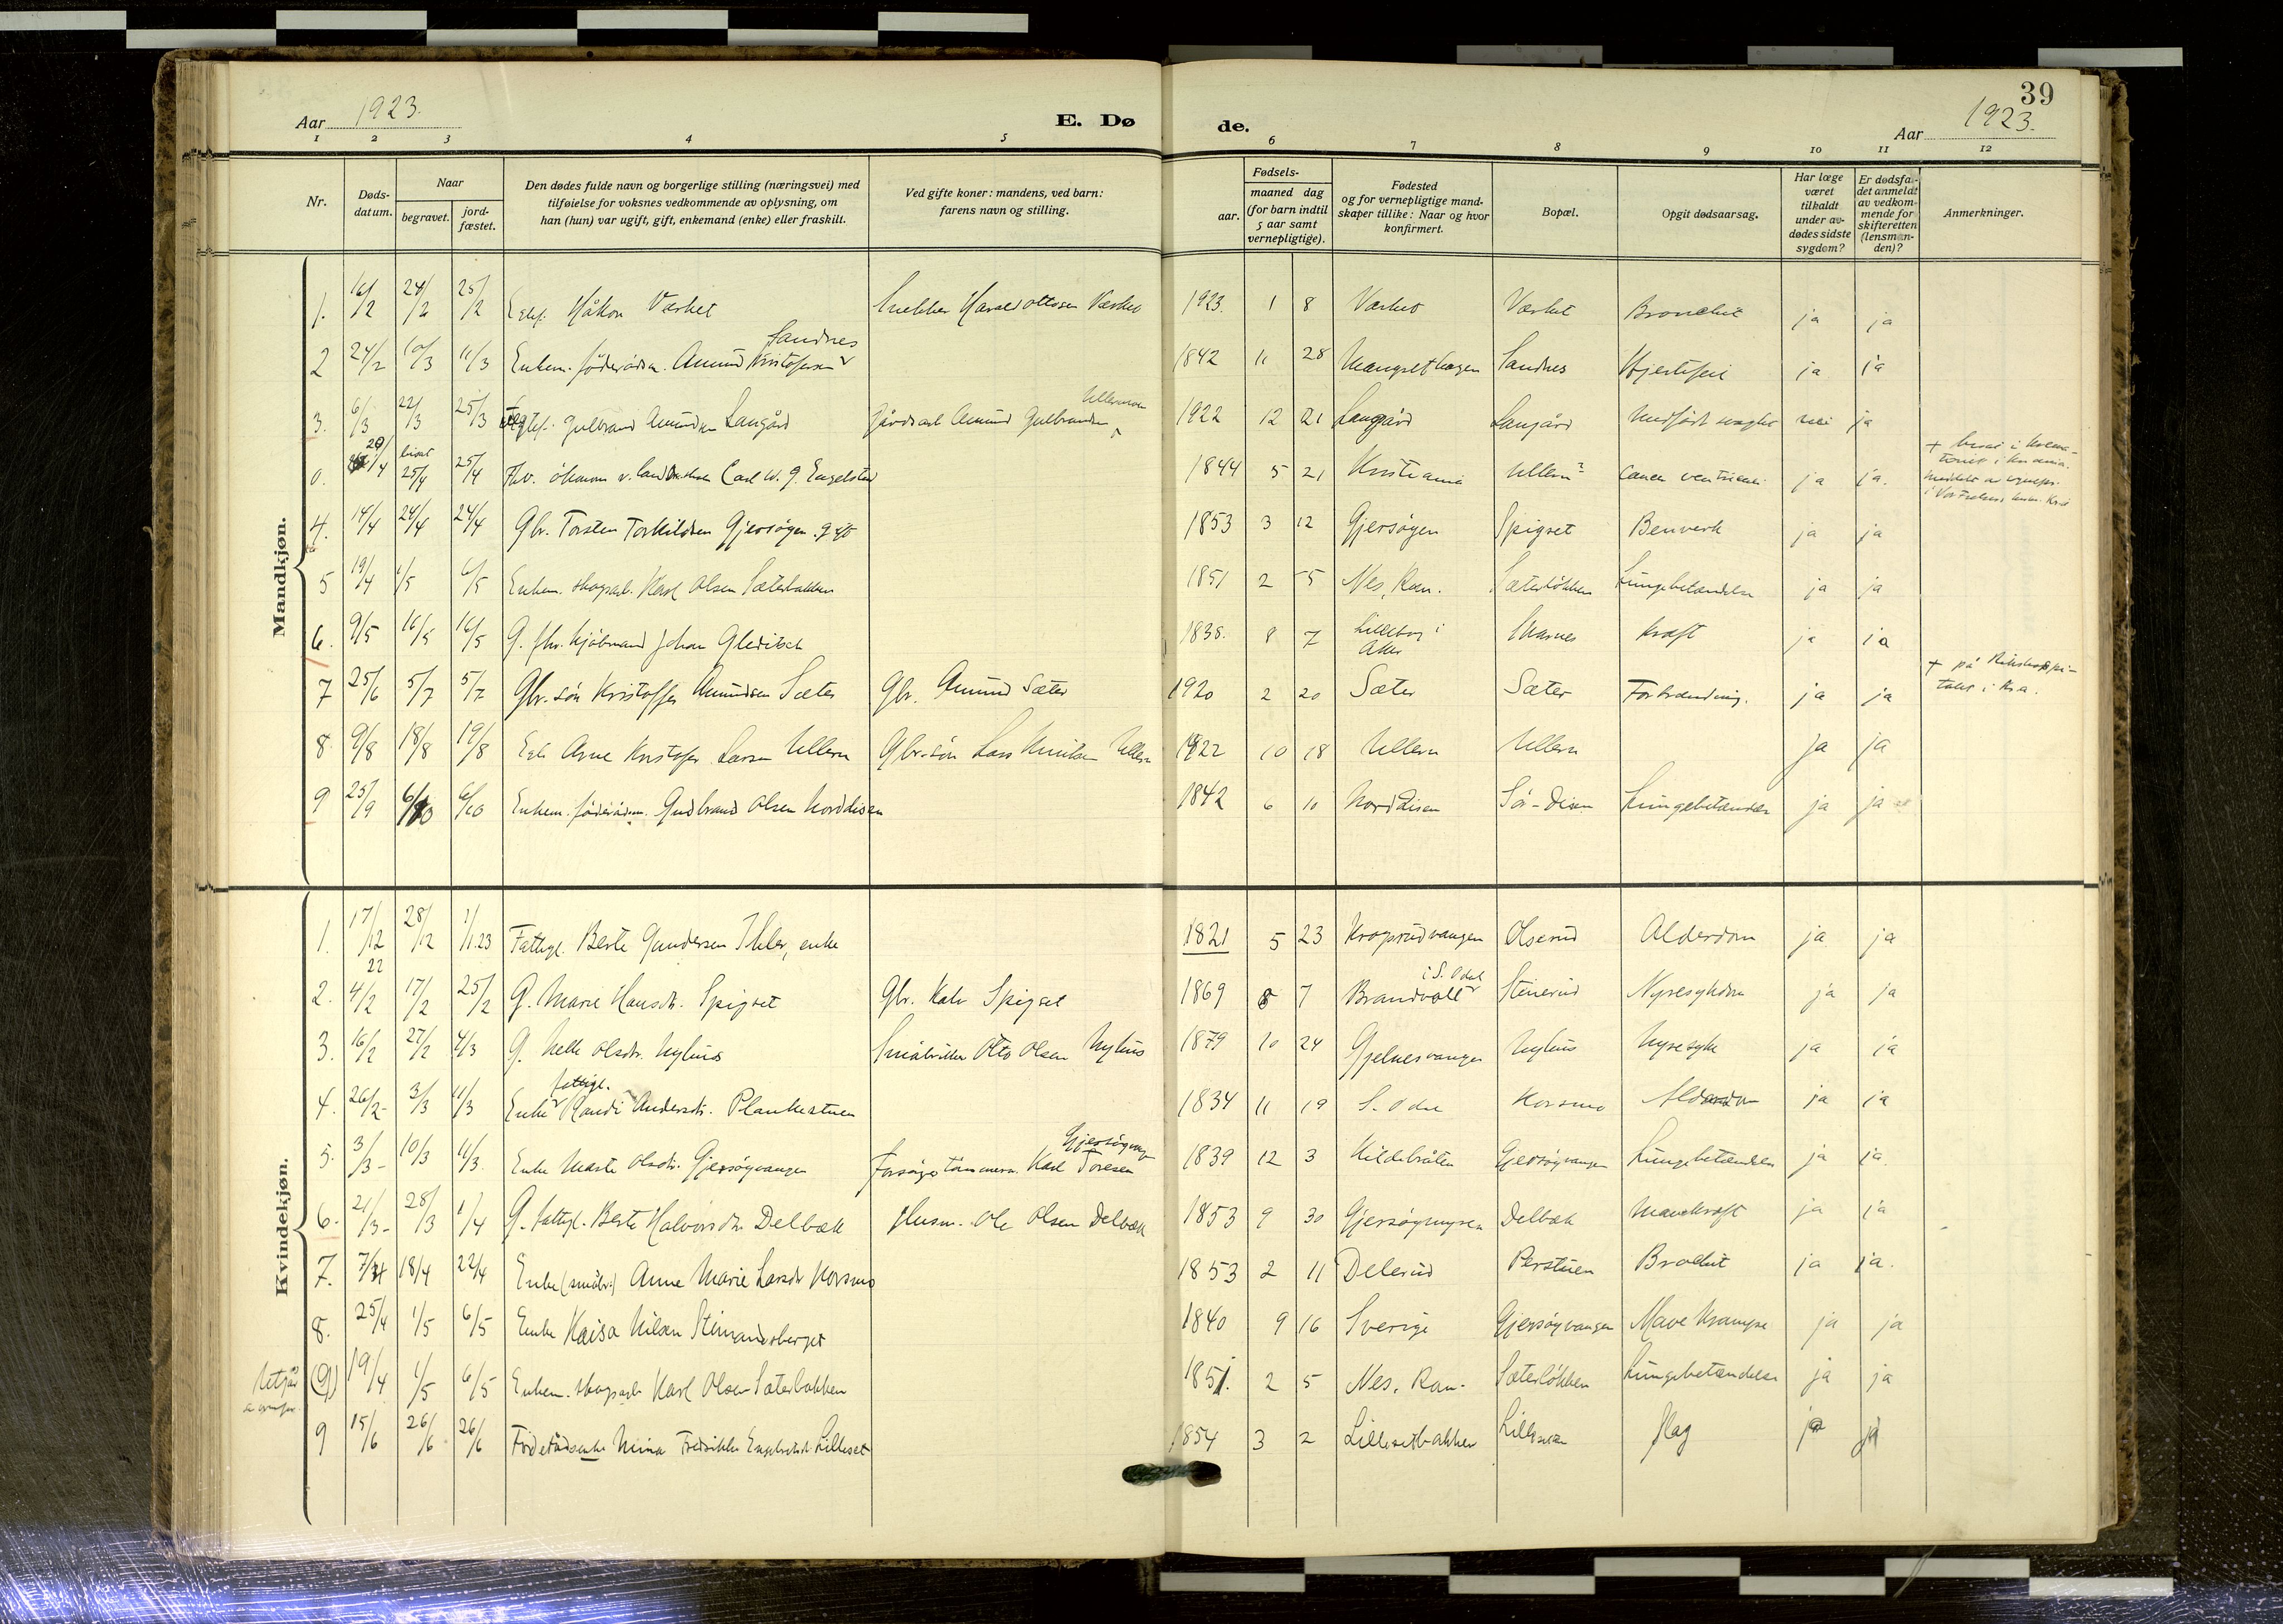 39
Aar 1923.
E. Dø
de.
Aar 1923.
1 2 3 4 5 6 7 8 9 10 11 12
Nr.
Døds-
datum.
Naar
begravet.
jord-
fæstet.
Den dødes fulde navn og borgerlige stilling (næringsvei) med
tilføielse for voksnes vedkommende av oplysning, om
han (hun) var ugift, gift, enkemand (enke) eller fraskilt.
Ved gifte koner: mandens, ved barn:
farens navn og stilling.
Fødsels-
aar.
maaned dag
(for barn indtil
5 aar samt
vernepligtige).
Fødested
og for vernepligtige mand-
skaper tillike: Naar og hvor
konfirmert.
Bopæl.
Opgit dødsaarsag.
Har læge
været
tilkaldt
under av-
dødes sidste
sygdom?
Er dødsfal-
det anmeldt
av vedkom-
mende for
skifteretten
(lensman-
den)?
Anmerkninger.
Mandkjøn.
1. 16/2 24/2 25/2 Håkon Værket Snekker Harald Ottosen Værket 1923. 1 8 Værket Værket Bronchit ja ja
Sandnes
2 24/2 10/3 11/3 Enkem. föderådsm. Amund Kristofersen 1842 11 28 Mangset hagen Sandnes Hjertefeil ja ja
Ullersmoen
3. 6/3 22/3 25/3 Gulbrand Amundsen Langård Gårdsarb Amund Gulbrandsen 1922 12 21 Langård Langård Medfødt svaghet nei ja
0. 20/4 25/4 25/4 Fhv. Carl W. G. Engelstad 1844 5 21 Kristiania Ullern Cancer ventriculi ja ja.
4. 14/4 24/4 24/4 Gbr. Torsten Torkildsen Gjersøyen 1853 3 12 Gjersøyen Spigset Benverk ja ja
5 19/4 1/5 6/5 Enkem. skogsarb. Karl Olsen Sæterbakken 1851 2 5 Nes, Rom. Sæterløkken Lungebetændelse ja ja
6. 9/5 16/5 16/5 G. fhv. kjöbmand Johan Gleditsch 1838. 8 7 Lilleborg i Aker Skarnes Kræft ja ja
7 25/6 5/7 5/7 Gbr. sön Kristoffer Amundsen Sæter Gbr. Amund Sæter 1920 2 20 Sæter Sæter Forbrænding. ja ja
+ på Rikshospi-
talet i Kra.
8. 9/8 18/8 19/8 Arne Kristofer Larsen Ullern Gbr.sön Lars Knutsen Ullern 1922 10 18 Ullern Ullern ja ja
9 25/9 6/10 6/10 Enkem. föderådsm. Gudbrand Olsen Norddisen 1842 6 10 Norddisen Sör-Disen Lungebetændelse ja ja
Kvindekjøn.
1. 17/12 22 28/12 1/1.23 Fattigl. Berte Gundersen Ihler, enke 1821 5 23 Krogsrudvangen Olserud Alderdom ja ja
i S. Odal
2. 4/2 17/2 25/2 G. Marie Hansdtr. Spigset Gbr. Spigset 1869 8 7 Brandvold Stenerud Nyresykdom ja ja
3. 16/2 27/2 4/3 G. Olsdtr. Nyhus Småbruker Otto Olsen Nyhus 1879 10 24 Gjelnesvangen Nyhus Nyresyk ja ja
fattigl.
4. 26/2 3/3 11/3 Enke Randi Andersdtr. Plankestuen 1834 11 19 S. Odal Korsmo Alderdom ja ja
Gjersøyvang
5. 3/3 10/3 11/3. Enke Marte Olsdtr. Gjersøyvangen Karl Toresen 1839 12 3 Kildebråten Gjersøyvangen Lungebetændelse ja ja.
6. 21/3 28/3 1/4 G. fattigl. Berte Halvorsdtr. Delbæk Husm. Ole Olsen Delbæk 1853 9 30 Gjersøymyren Delbæk Mavekræft ja ja
7. 7/4 18/4 22/4 Enke (småbr.) Anne Marie Larsdtr Korsmo 1853 2 11 Delerud Perstuen ja ja.
8. 25/4 1/5 6/5 Enke Kaisa Nilsen 1840 9 16 Sverige Gjersøyvangen Mave Krampe ja ja
(9) 19/4 1/5 6/5 Enkem. skogsarb Karl Olsen Sæterbakken 1851. 2 5 Nes, Rom. Sæterløkken Lungebetændelse ja ja
9 15/6 26/6 26/6 Föderådsenke Mina Fredrikke Lilleset 1854 3 2 Lillesetbakken Lilleset Slag ja ja